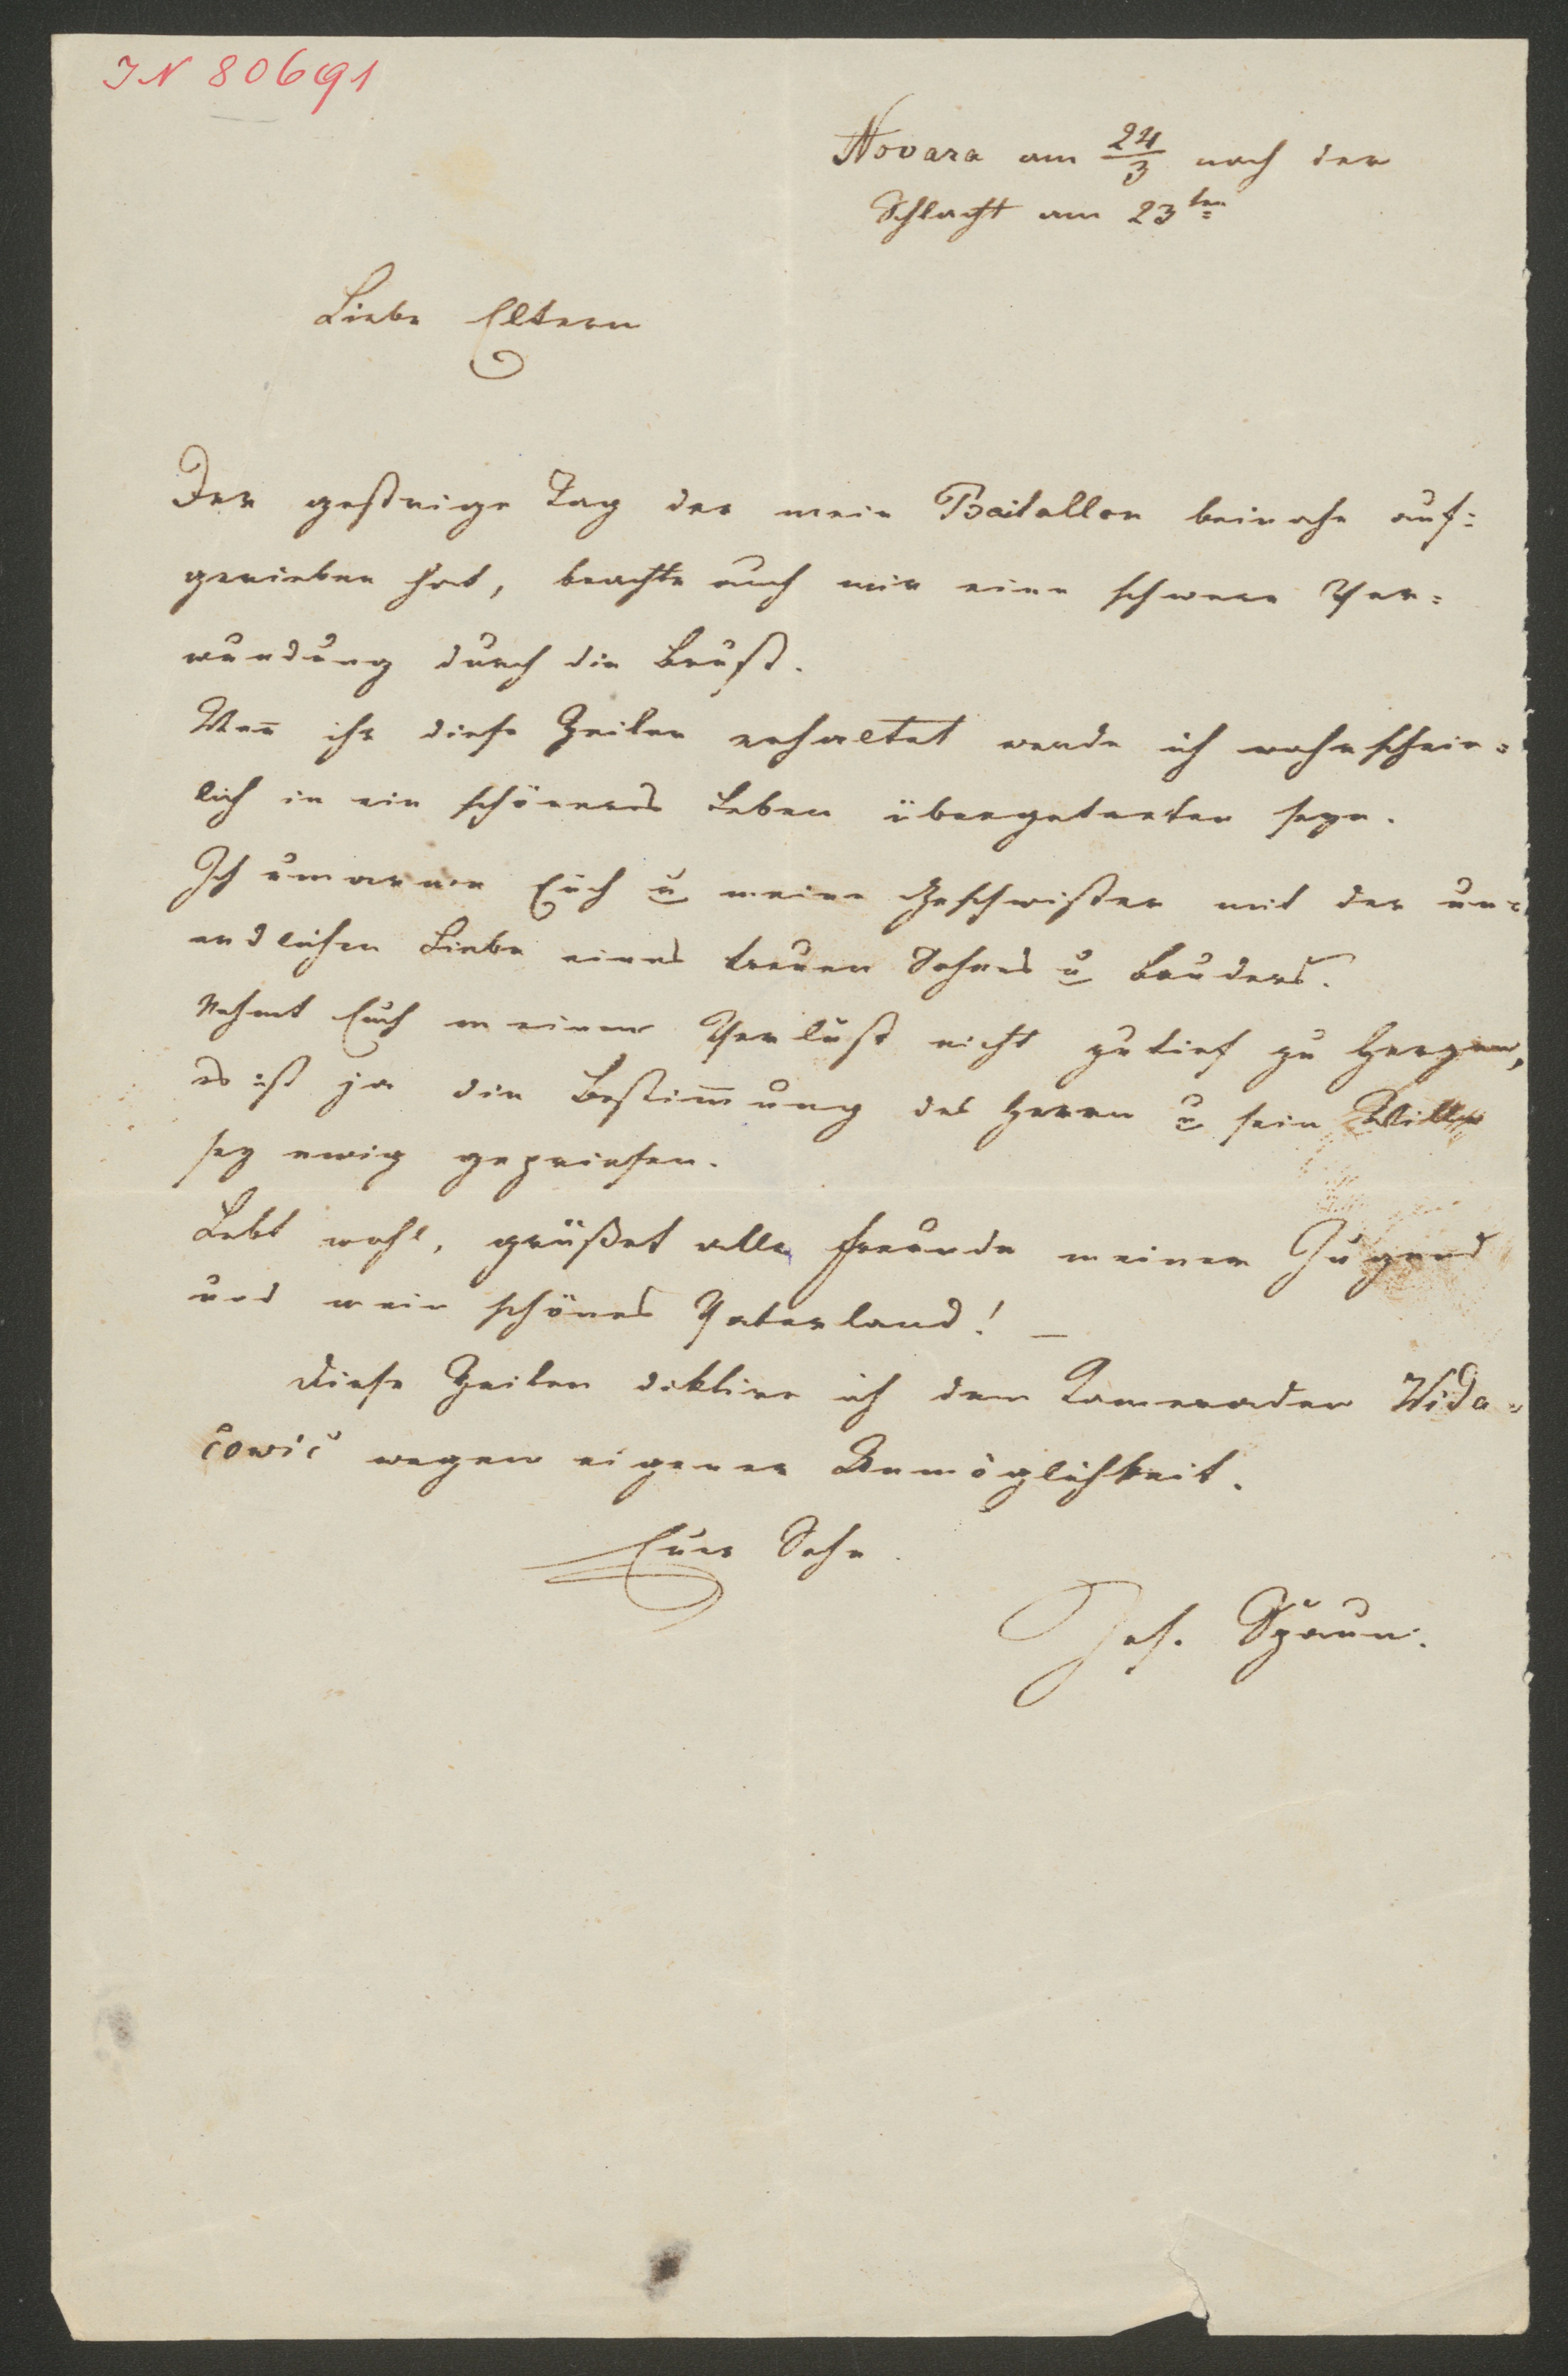 IN 80691
Novara am 24/3 nach der
Schlacht am 23ten
Liebe Eltern
Der gestrige Tag der mein Batallon beinahe auf=
gerieben hat, brachte auch mir eine schwere Ver=
wundung durch die Brust.
Wen̅ ihr diese Zeilen erhaltet werde ich wahrschein=
lich in ein schöneres Leben übergetretten seyn.
Ich umarme Euch u meine Geschwister mit der un=
endlichen Liebe eines treuen Sohnes u Bruders.
Nehmt Euch meinen Verlust nicht zu tief zu Herzen,
es ist ja die Bestim̅ung des Herrn u sein Wille
sey ewig gepriesen.
Lebt wohl, grüßet alle Freunde meiner Jugend
und mein schönes Vaterland! —
Diese Zeilen diktire ich dem Kameraden Vida=
čović wegen eigener Unmöglichkeit.
Euer Sohn.
Jos. Spaun.